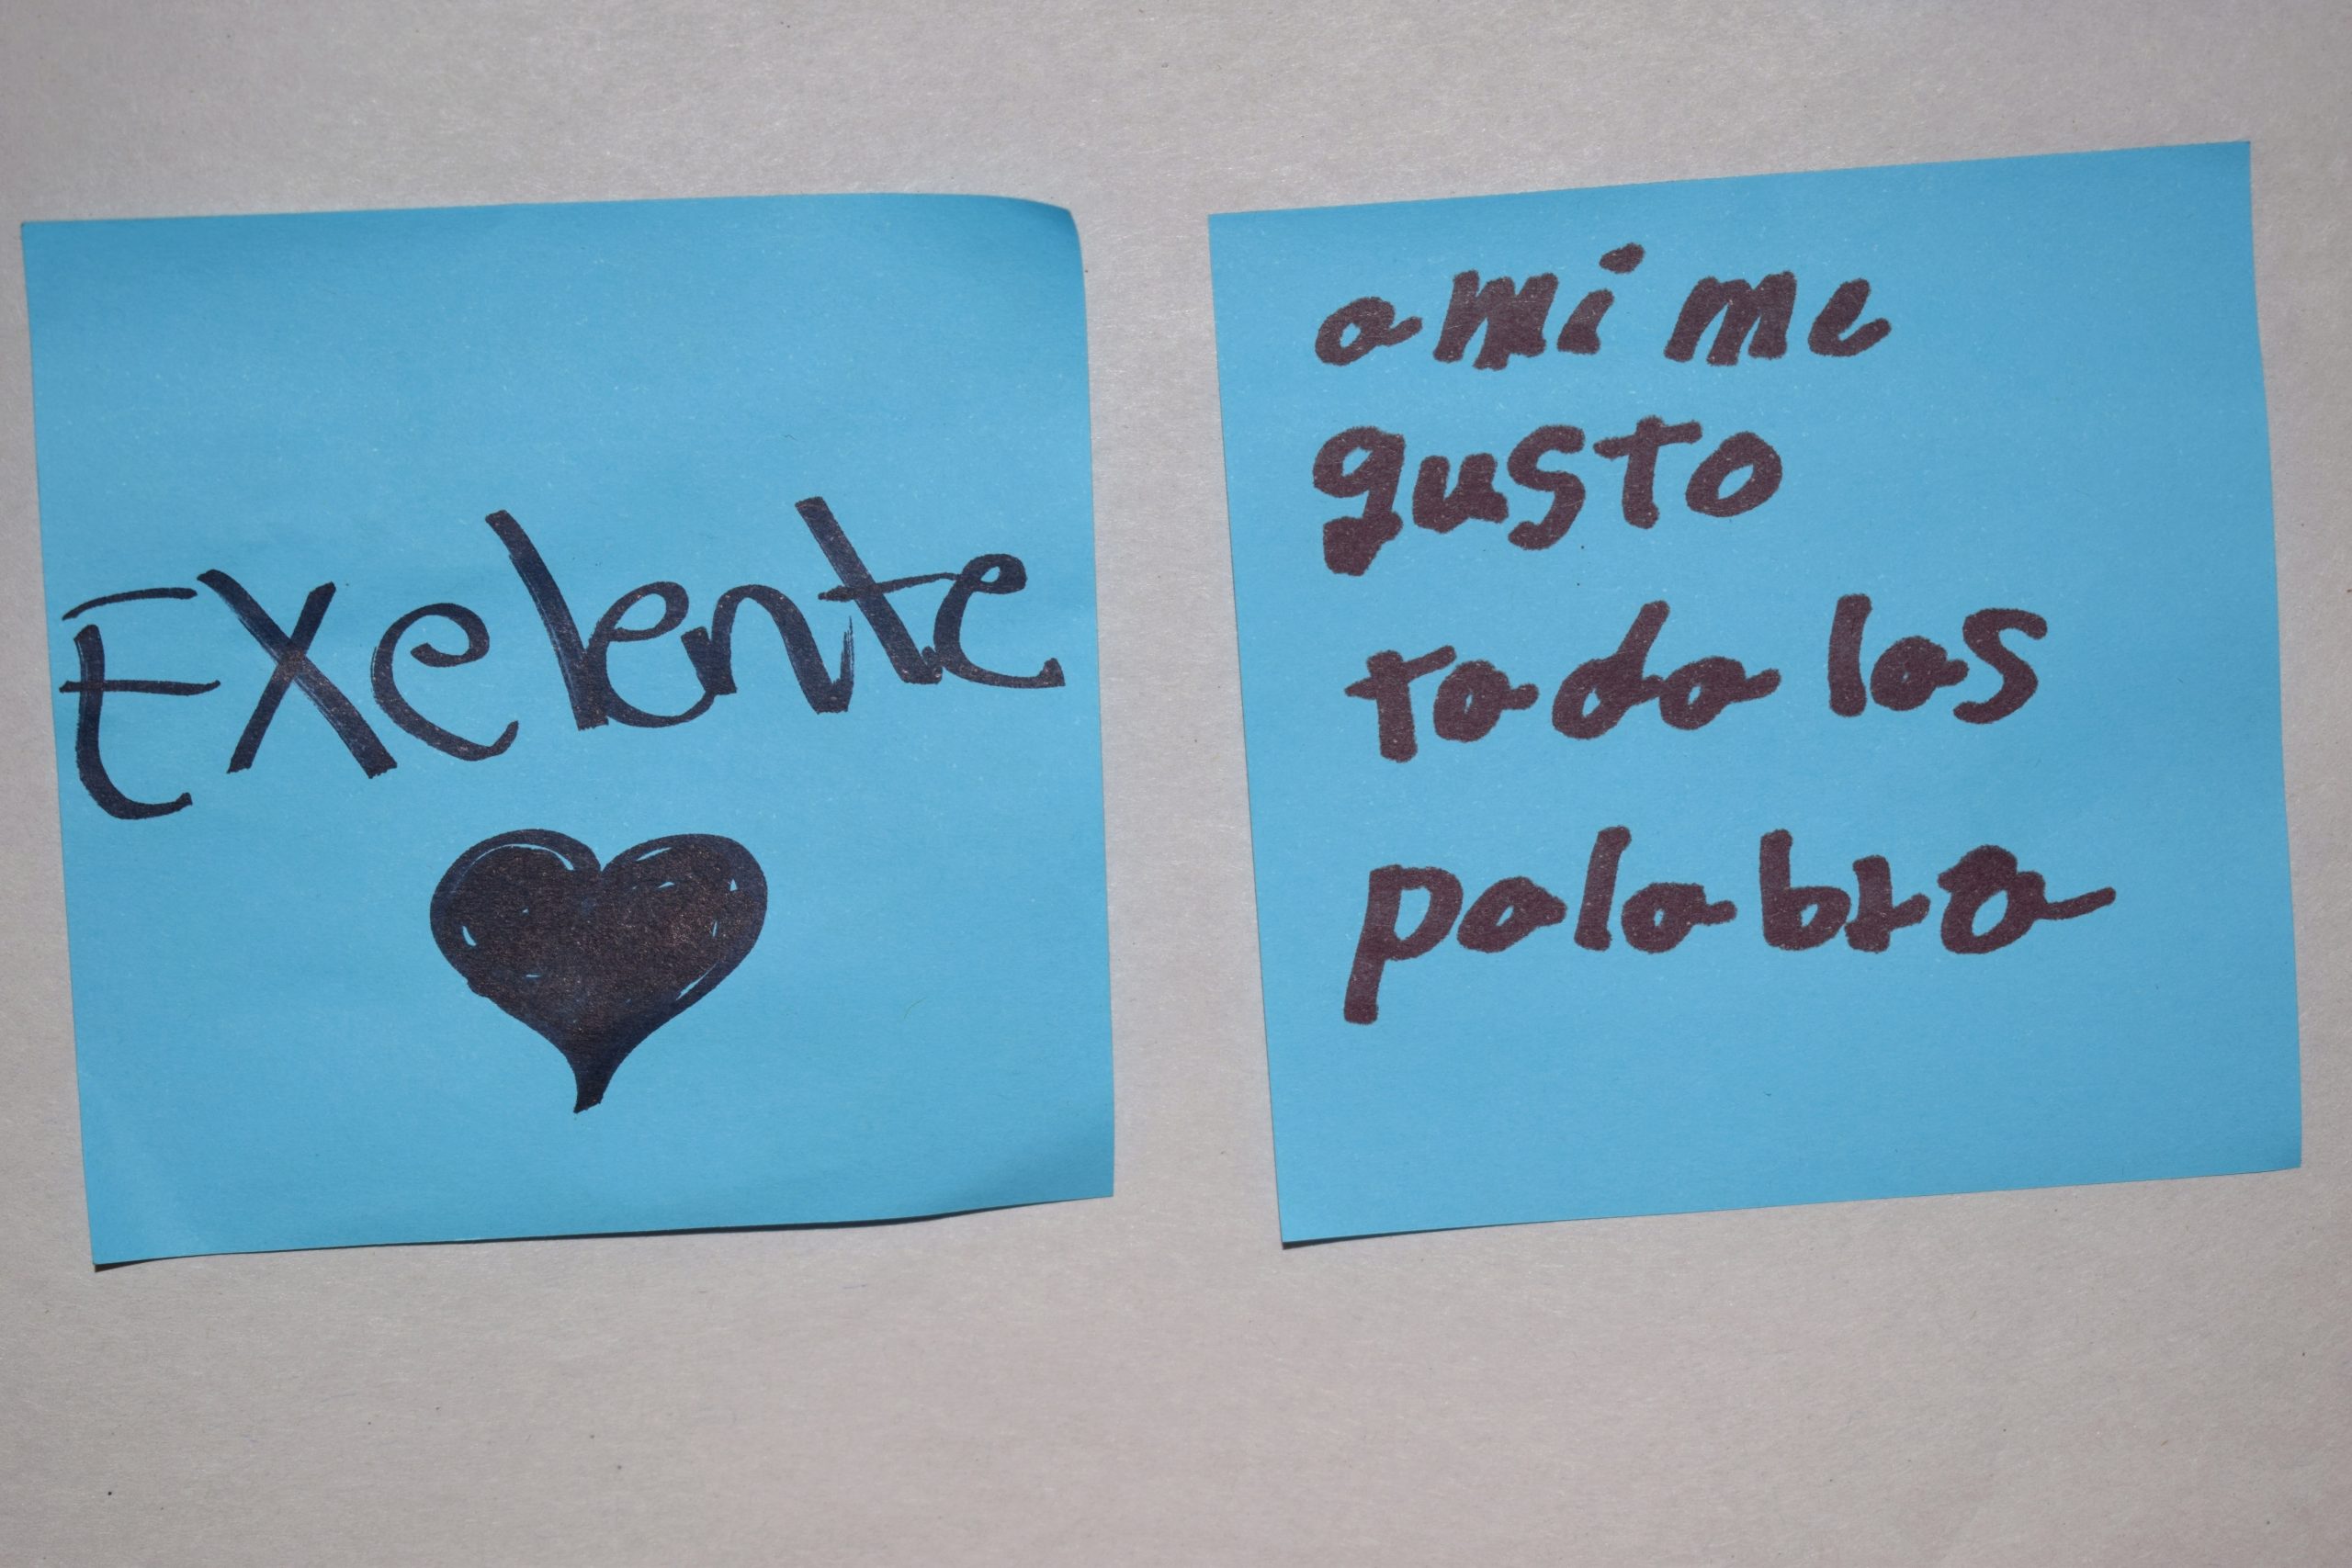 Exelente
a mi me
gusto
toda las
palabra